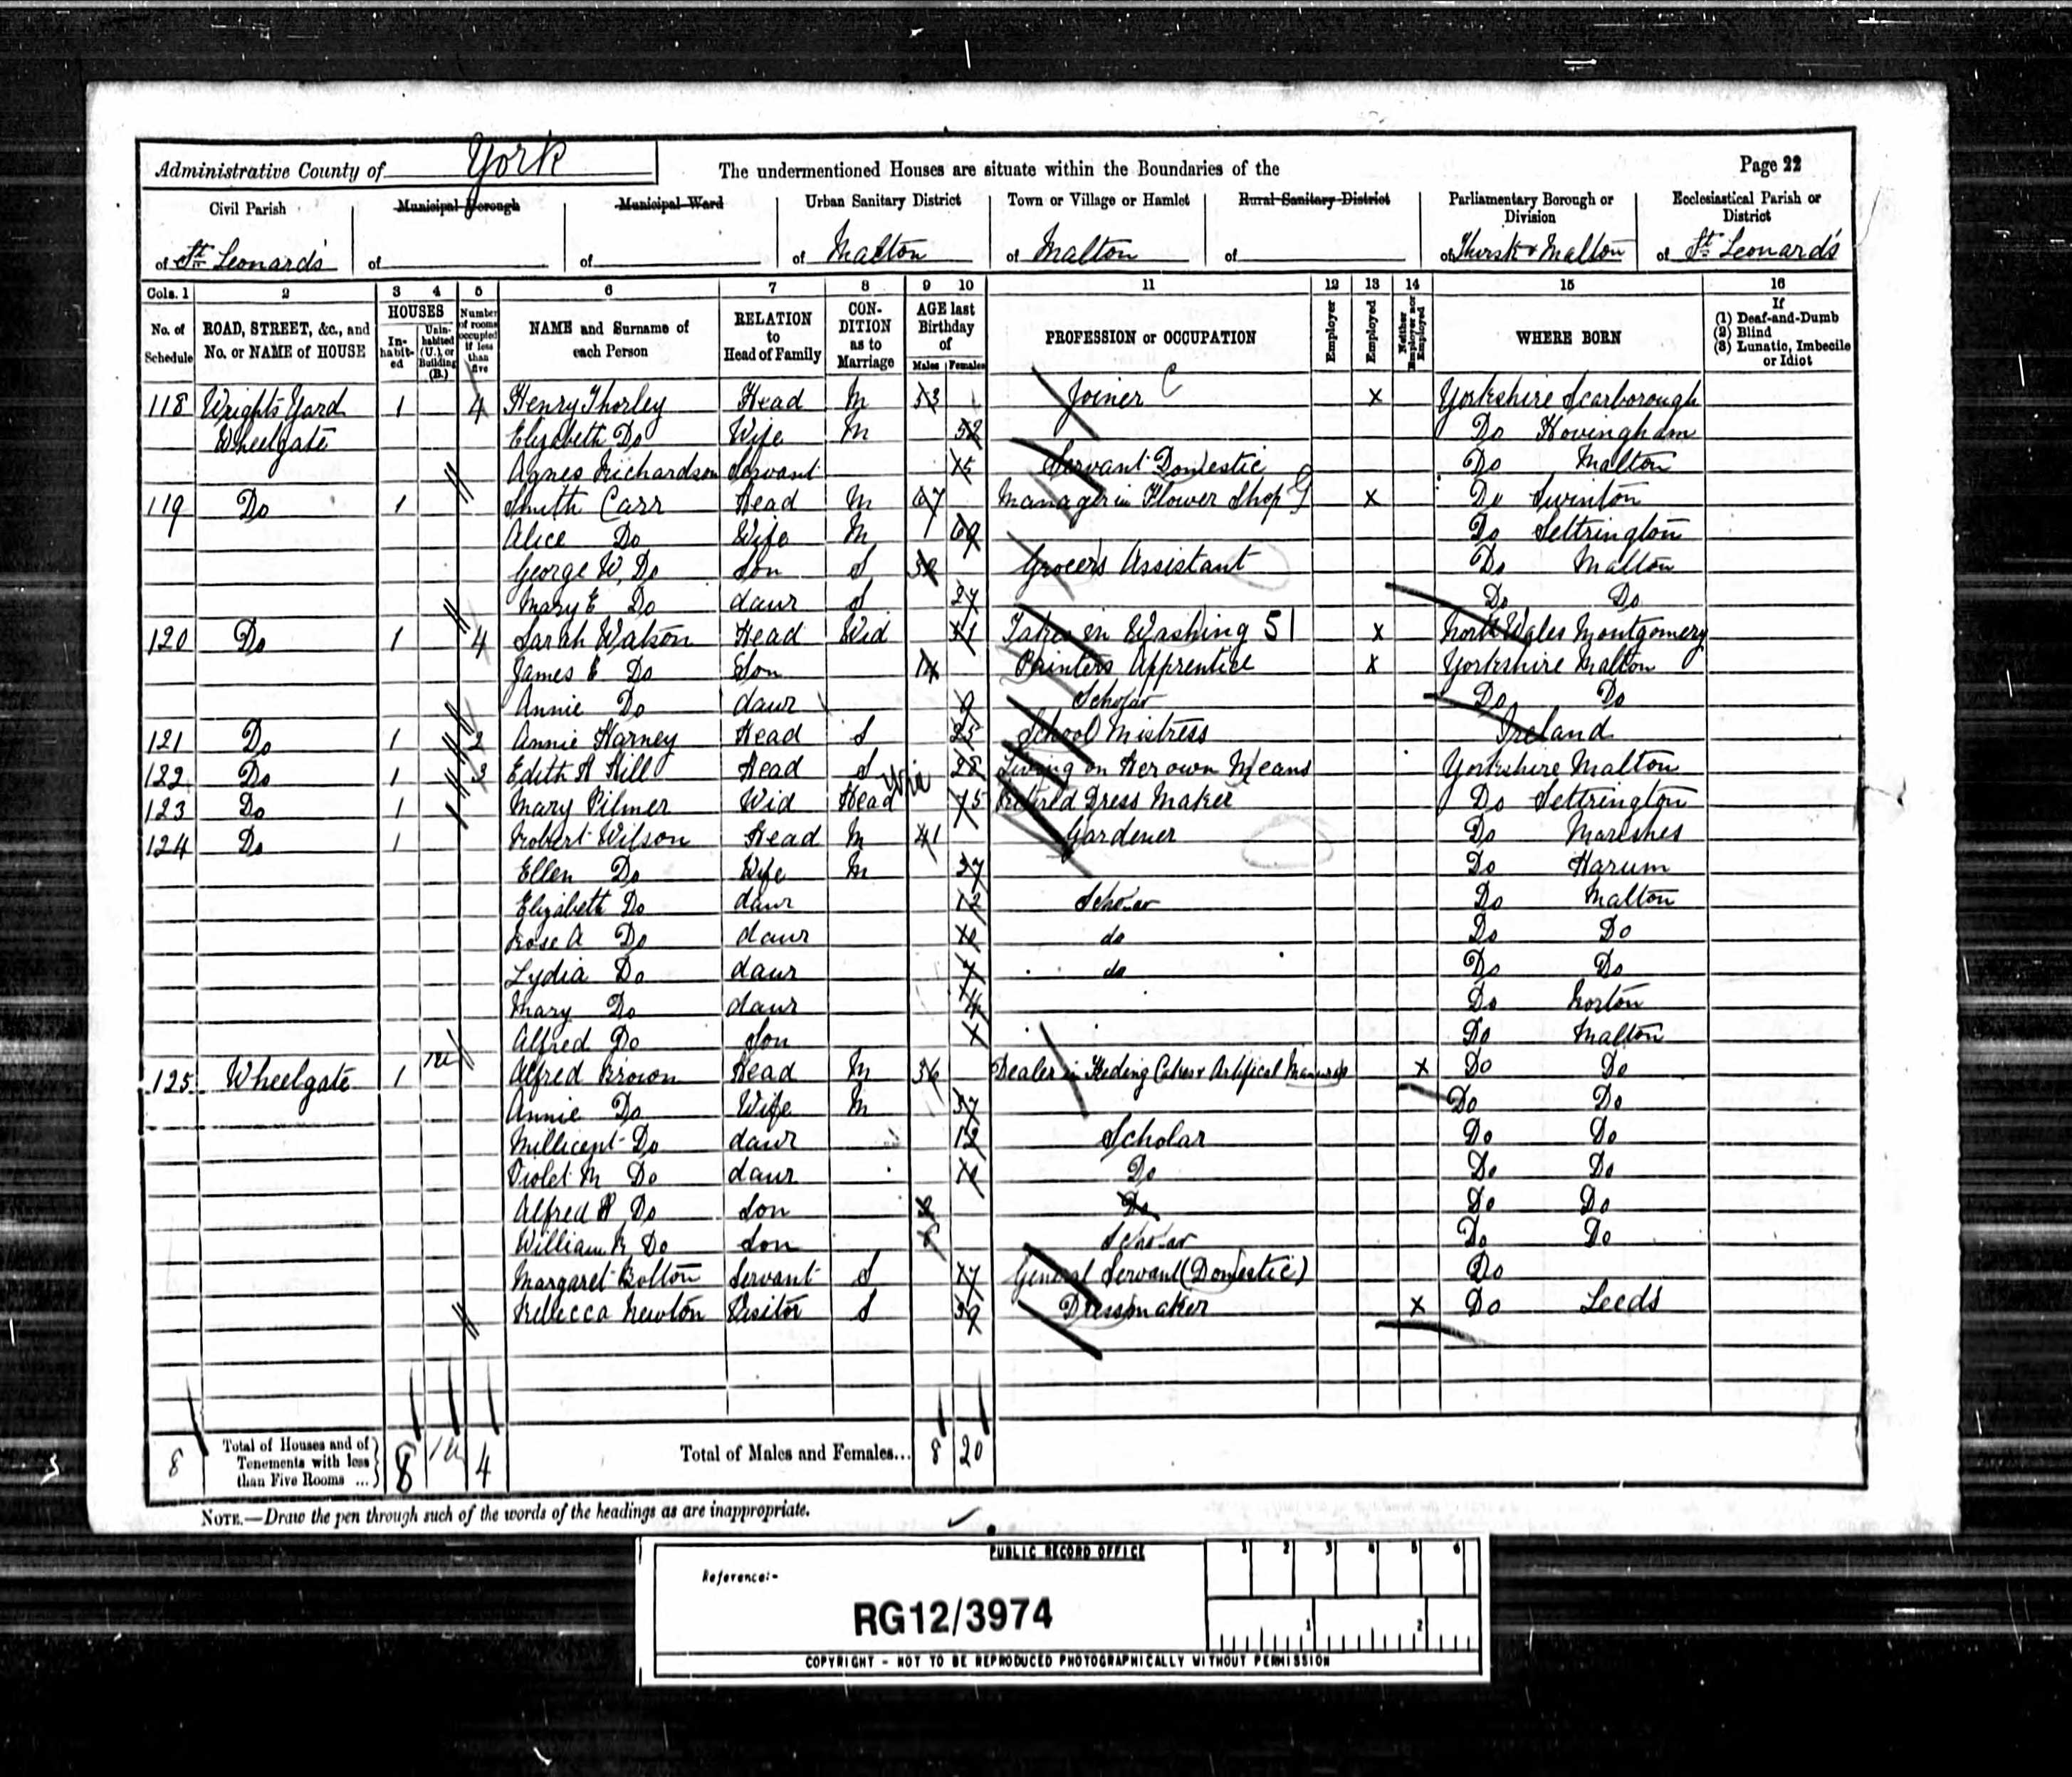 Administrative County of York
The undermentioned Houses are situate within the Boundaries of the
Page 22
Civil Parish of St. Leonard's
Municipal Borough of
Municipal Ward of
Urban Sanitary District of Malton
Town or Village or Hamlet of Malton
Rural Sanitary District of
Parliamentary Borough or Division of Thirsk & Malton
Ecclesiastical Parish or District of St. Leonard's
Cols. 1 2 3 4 5 6 7 8 9 10 11 12 13 14 15 16
No. of Schedule
ROAD, STREET, &c., and No. or NAME of HOUSE
HOUSES
In-habit-ed
Unin-habited (U.), or Building (B.)
Number of rooms occupied if less than five
NAME and Surname of each Person
RELATION to Head of Family
CON-DITION as to Marriage
AGE last Birthday of
Males Females
PROFESSION or OCCUPATION
Employer
Employed
Neither Employer nor Employed
WHERE BORN
If (1) Deaf-and-Dumb (2) Blind (3) Lunatic, Imbecile or Idiot
118 Wrights Yard 1 4 Henry Thorley Head M 53 Joiner C x Yorkshire Scarborough
Wheelgate Elizabeth Do Wife M 52 Do Hovingham
Agnes Richardson Servant 15 Servant Domestic Do Malton
119 Do 1 Smith Carr Head M 67 Manager in Flower Shop x Do Swinton
Alice Do Wife M 69 Do Settrington
George W. Do Son S Grocers Assistant Do Malton
Mary E Do daur S 27 Do Do
120 Do 1 4 Sarah Watson Head Wid Takes in Washing 51 x North Wales Montgomery
James E Do Son 14 Apprentice x Yorkshire Malton
Annie Do daur 9 Scholar Do Do
121 Do 1 2 Annie Harney Head S 25 School Mistress Ireland
122 Do 1 3 Edith A Hill Head S 28 Living on Her own Means Yorkshire Malton
123 Do 1 Mary Pilmer Wid Head 75 Retired Dress Maker Do Settrington
124 Do 1 Robert Wilson Head M 41 Gardener Do Marishes
Ellen Do Wife M 37 Do Harum
Elizabeth Do daur 12 Scholar Do Malton
Rose A Do daur 10 do Do Do
Lydia Do daur 7 do Do Do
Mary Do daur 4 Do Norton
Alfred Do Son 1 Do Malton
125 Wheelgate 1 1u Alfred Brown Head M 36 Dealer in Feeding Cakes & Artifical Manures x Do Do
Annie Do Wife M 37 Do Do
Millicent Do daur 12 Scholar Do Do
Violet M Do daur 10 Do Do Do
Alfred H Do Son Do Do Do
William R Do Son Scholar Do Do
Margaret Bolton Servant S 17 General Servant (Domestic) Do
Rebecca Newton Visitor S 39 Dressmaker x Do Leeds
8 Total of Houses and of Tenements with less than Five Rooms ... 8 1u 4 Total of Males and Females... 8 20
NOTE.—Draw the pen through such of the words of the headings as are inappropriate.
PUBLIC RECORD OFFICE
1 2 3 4 5 6
Reference:-
RG12/3974
1 2
COPYRIGHT - NOT TO BE REPRODUCED PHOTOGRAPHICALLY WITHOUT PERMISSION